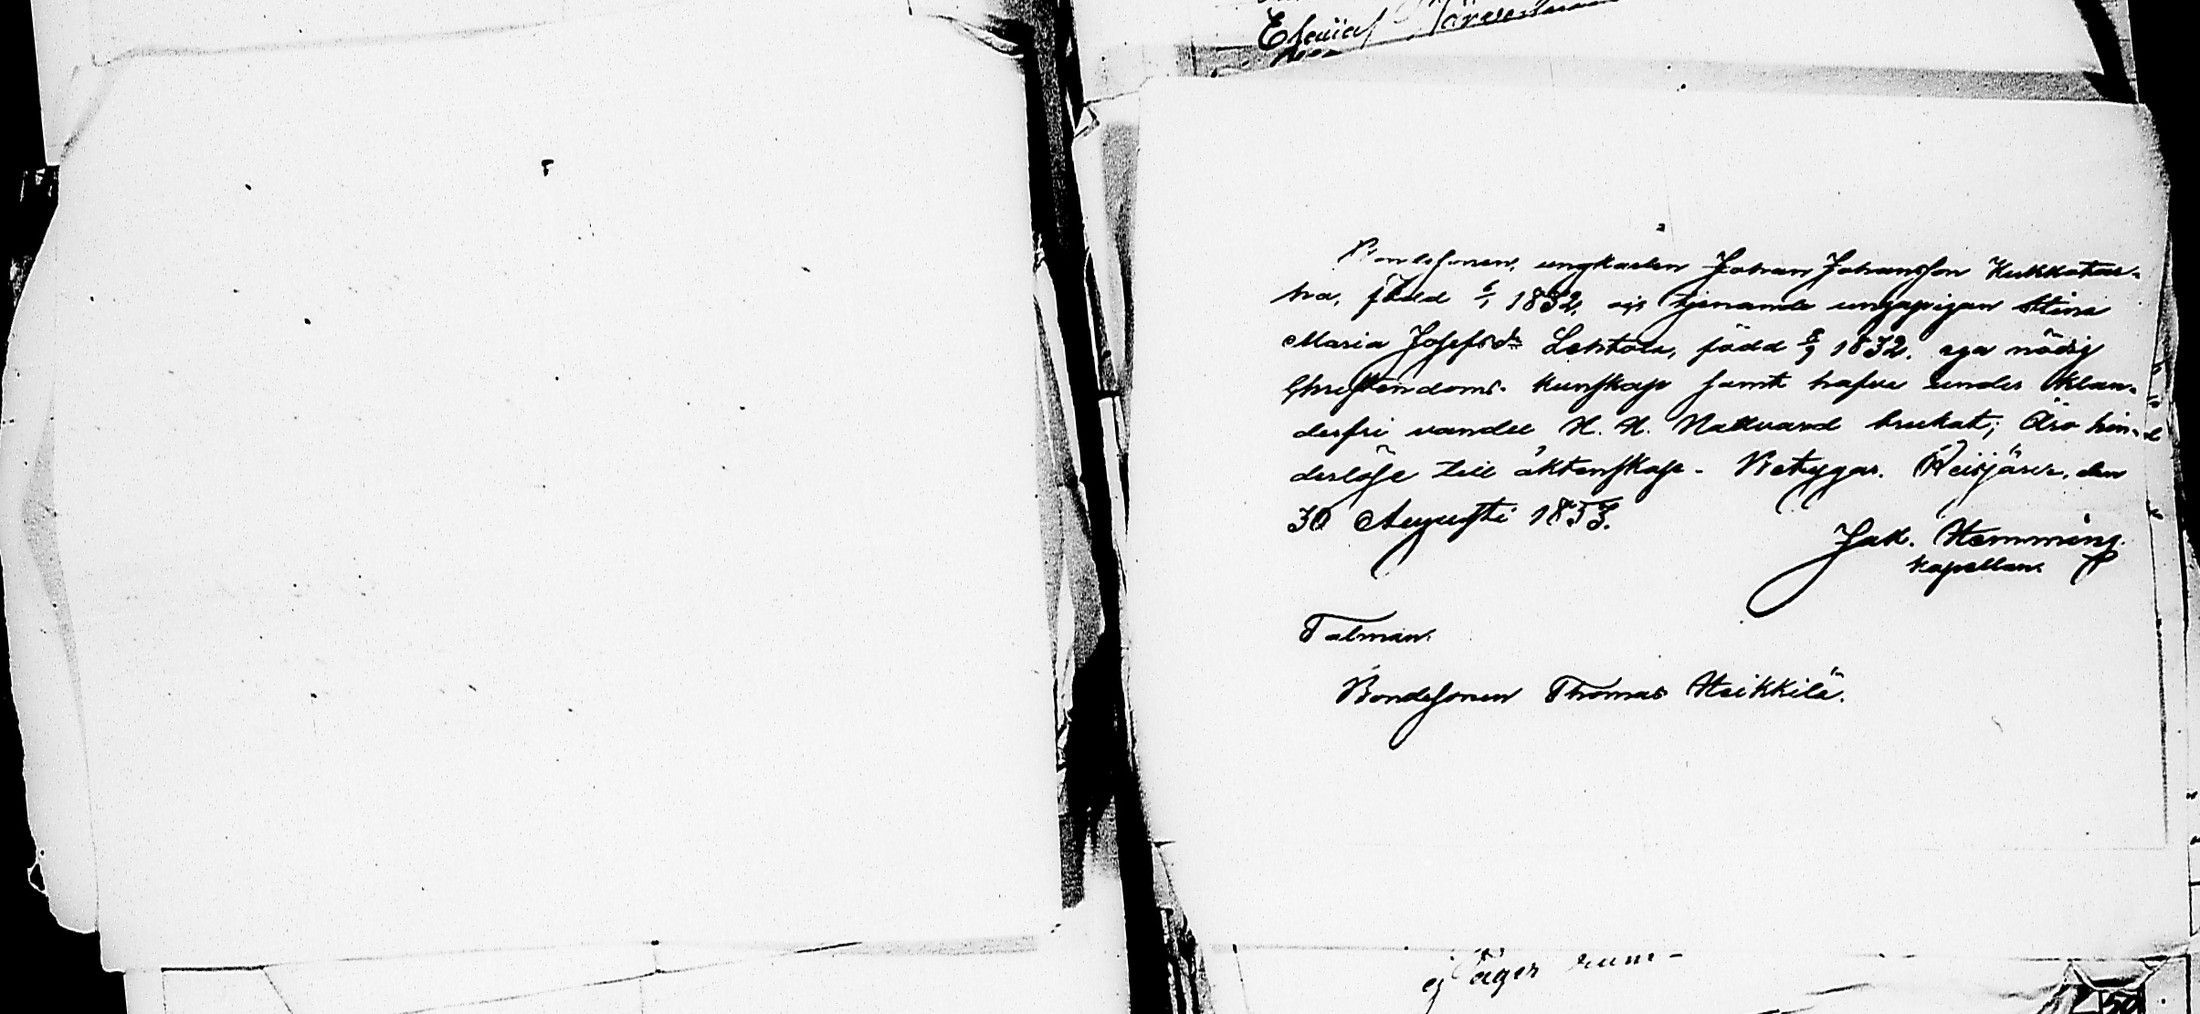 Esaias
Bondesonen, ungkarlen Johan Johansson Kukkotar-
ha, född 6/1 1832, och tjenande ungapigan Stina
Maria Josefsdr Lehtola, född 8/9 1832, ega nödig
Christendoms-kunskap samt hafva under klan-
derfri vandel H. H. Nattvard brukat; Äro hin-
derlöse till äktenskap. Betygar. Reisjärvi, den
30 Augusti 1853.
Jak. Hemming.
Kapellan.
Talman.
Bondesonen Thomas Heikkilä.
ej äger rum